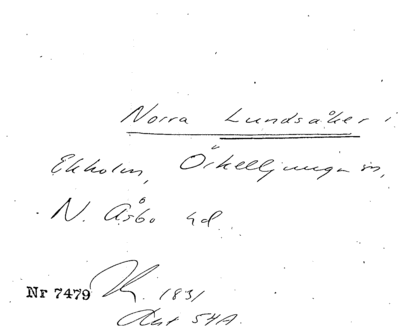 Norra Lundsåker i
Ekholm, Örkelljunga sn,
N. Åsbo hd
Nr 7479 1831
54A.